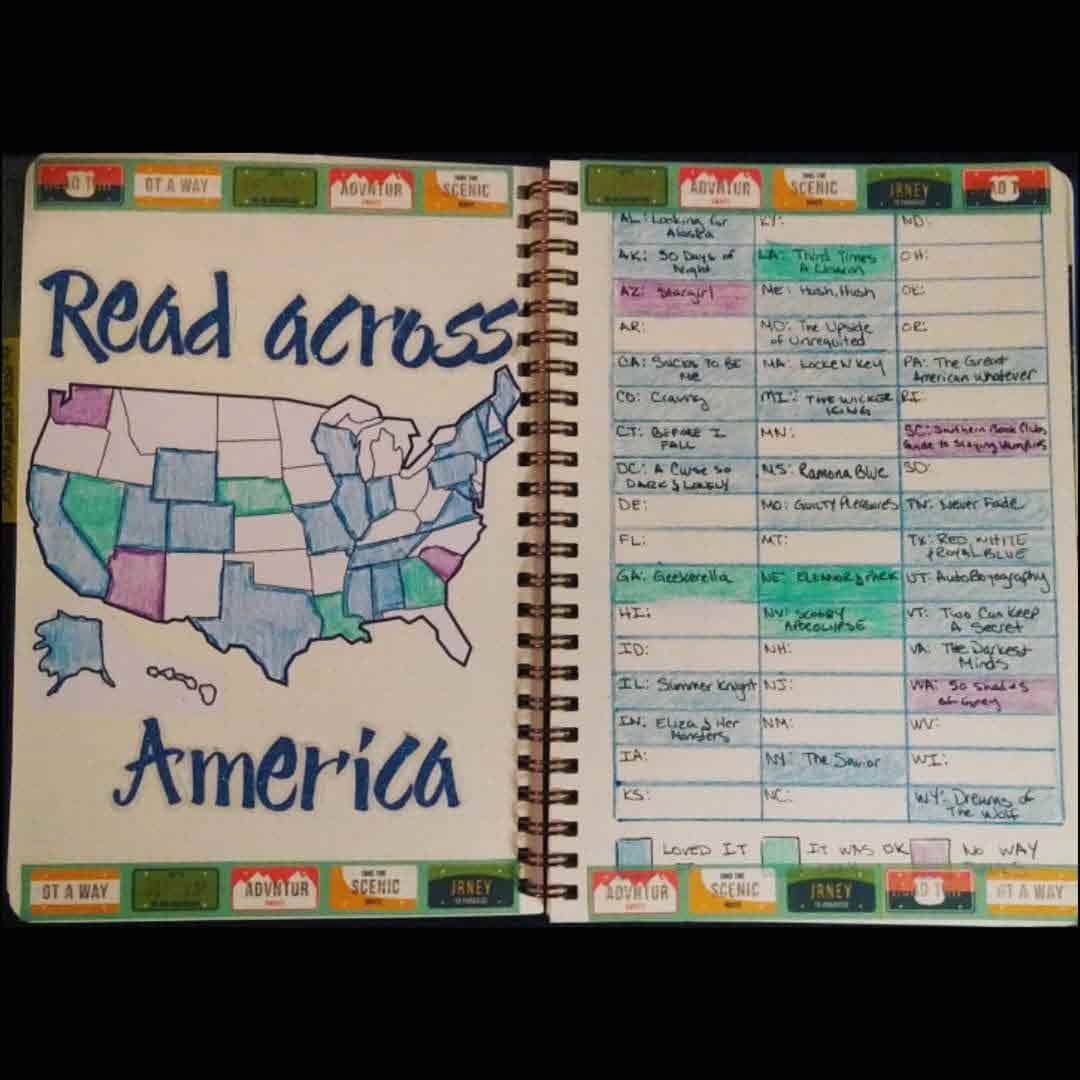 OT A WAY
ADVNTUR
TAKE THE
SCENIC
ADVNTUR
TAKE THE
SCENIC
JRNEY
Read across
America
AL: Looking for
Alaska
AK: 30 Days of
Night
AZ: Stargirl
AR:
CA: Sucks to Be
Me
CO: Craving
CT: BEFORE I
FALL
DC: A Curse so
DARK & LONELY
DE:
FL:
GA: Geekerella
HI:
ID:
IL: Summer Knight
IN: Eliza & Her
Monsters
IA:
KS:
KY:
LA: Third Times
A Charm
ME: Hush, Hush
MD: The Upside
of Unrequited
MA: Locke N Key
MI: THE WICKER
KING
MN:
MS: Ramona Blue
MO: GUILTY PLEASURES
MT:
NE: ELEANOR & PARK
NV: SCOOBY
APOCOLYPSE
NH:
NJ:
NM:
NY: The Savior
NC:
ND:
OH:
OK:
OR:
PA: The Great
American Whatever
RI:
SC: Southern Book Clubs
Guide to Slaying Vampires
SD:
TN: Never Fade
TX: RED, WHITE
& ROYAL BLUE
UT: AutoBoyography
VT: Two Can Keep
A Secret
VA: The Darkest
Minds
WA: 50 Shades
of Grey
WV:
WI:
WY: Dreams of
The Wolf
LOVED IT
IT WAS OK
NO WAY
OT A WAY
ADVNTUR
TAKE THE
SCENIC
JRNEY
ADVNTUR
TAKE THE
SCENIC
JRNEY
OT A WAY